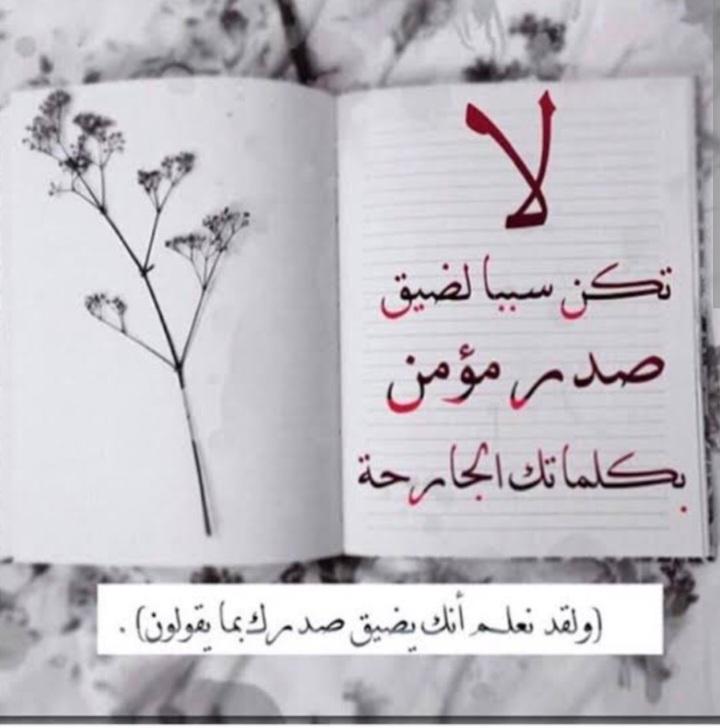 لا
تكن سببا لضيق
صدر مؤمن
بكلماتك الجارحة
(ولقد نعلم أنك يضيق صدرك بما يقولون) .